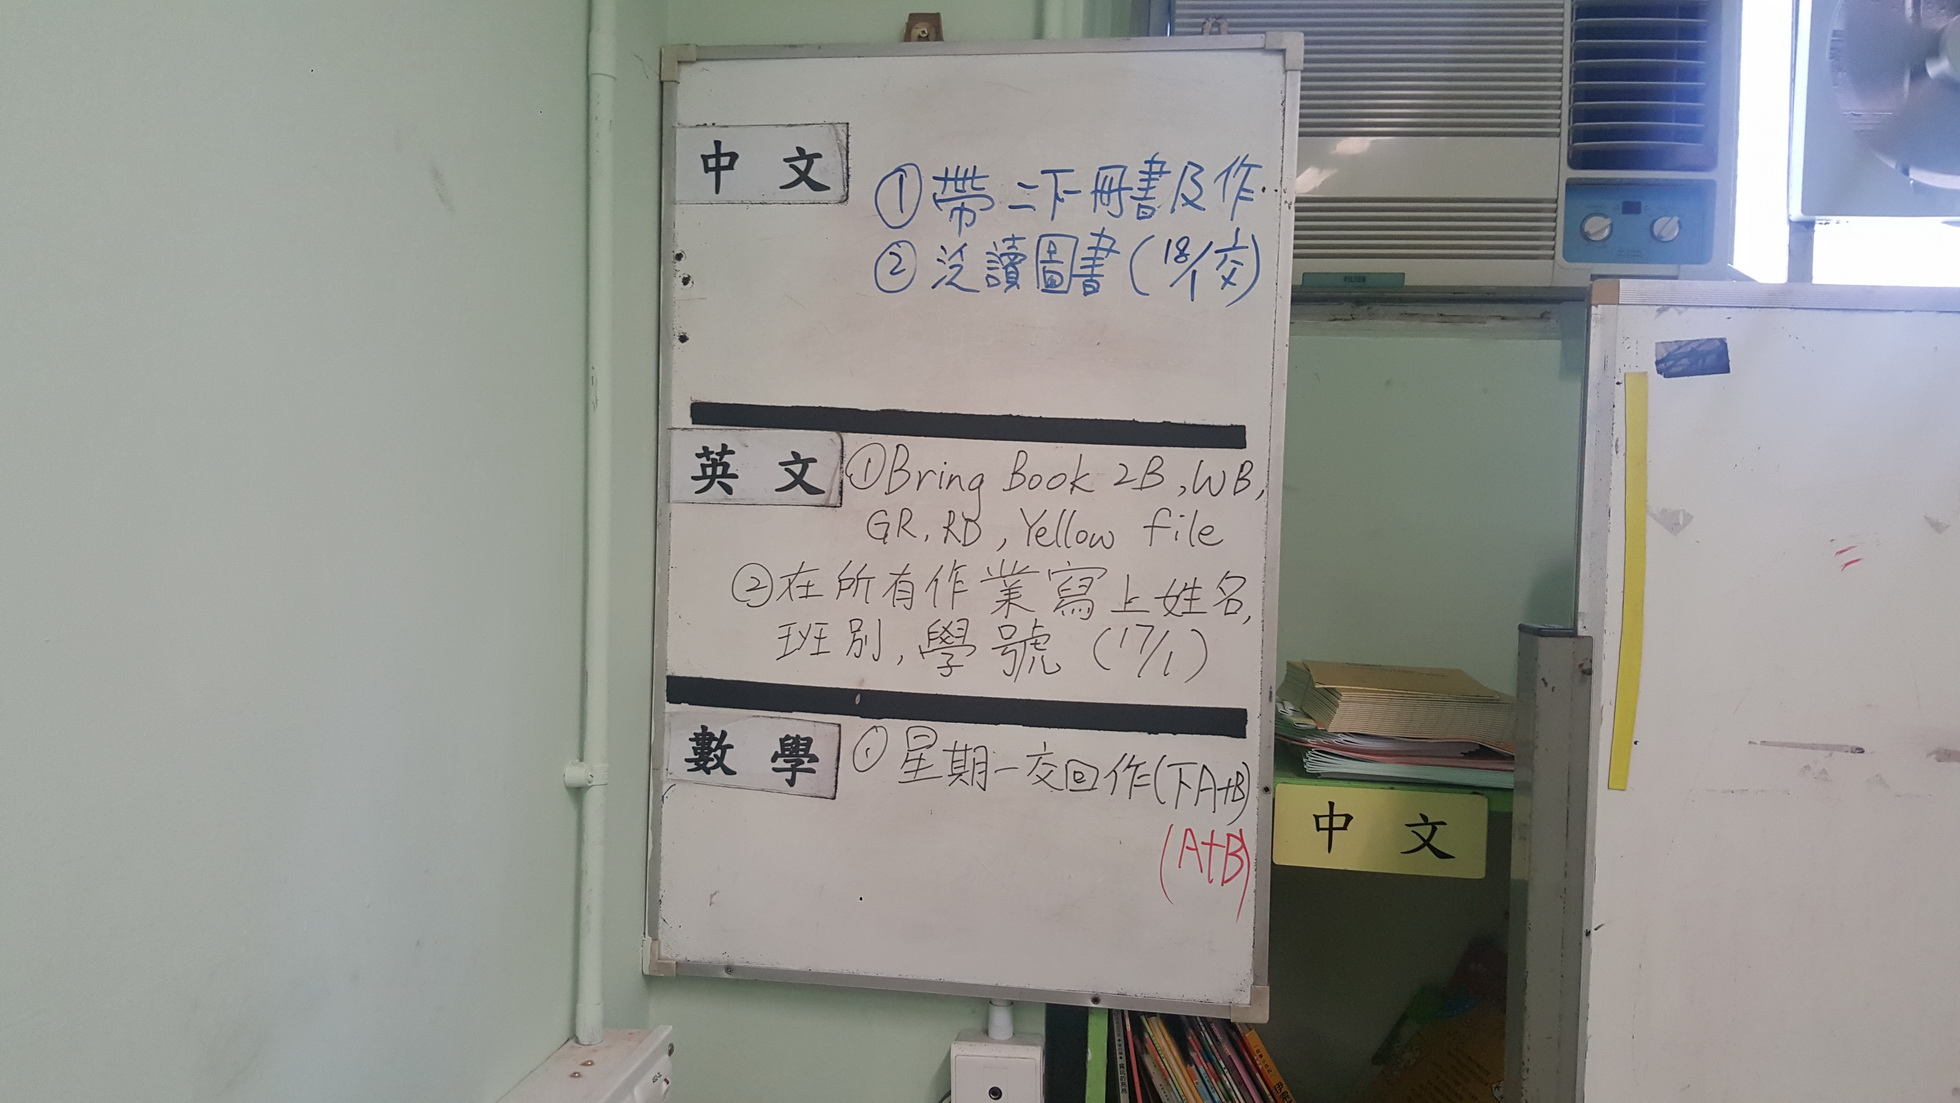 中文
①帶二下冊書及作
②泛讀圖書(18/1交)
英文
①Bring Book 2B, WB,
GR, RD, Yellow file
②在所有作業寫上姓名,
班別,學號(17/1)
數學
①星期一交回作(下A+B)
(A+B)
中文